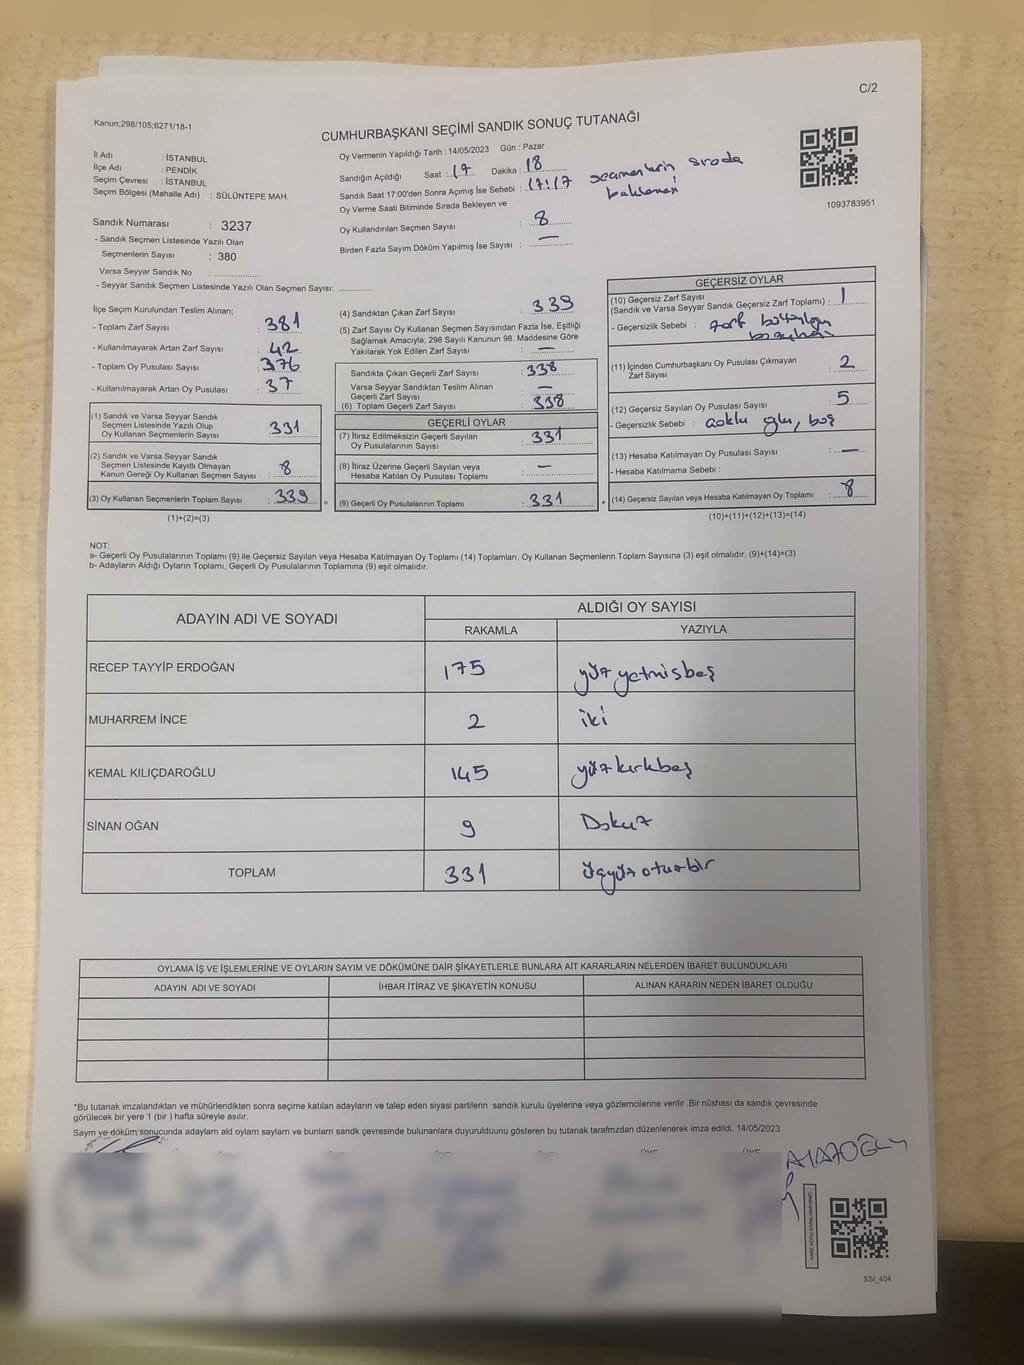 C/2
Kanun;298/105;6271/18-1
CUMHURBAŞKANI SEÇİMİ SANDIK SONUÇ TUTANAĞI
İl Adı : İSTANBUL
İlçe Adı : PENDİK
Seçim Çevresi : İSTANBUL
Seçim Bölgesi (Mahalle Adı) : SÜLÜNTEPE MAH.
Oy Vermenin Yapıldığı Tarih : 14/05/2023 Gün : Pazar
Sandığın Açıldığı Saat : 17 Dakika : 18
Sandık Saat 17:00'den Sonra Açımış İse Sebebi : 17:17 seçmenlerin sırada
Oy Verme Saati Bitiminde Sırada Bekleyen ve
Oy Kullandırılan Seçmen Sayısı : 8
Birden Fazla Sayım Döküm Yapılmış İse Sayısı : —
1093783951
Sandık Numarası : 3237
- Sandık Seçmen Listesinde Yazılı Olan
Seçmenlerin Sayısı : 380
Varsa Seyyar Sandık No :
- Seyyar Sandık Seçmen Listesinde Yazılı Olan Seçmen Sayısı:
İlçe Seçim Kurulundan Teslim Alınan;
- Toplam Zarf Sayısı : 381
- Kullanılmayarak Artan Zarf Sayısı : 42
- Toplam Oy Pusulası Sayısı : 376
- Kullanılmayarak Artan Oy Pusulası : 37
(1) Sandık ve Varsa Seyyar Sandık
Seçmen Listesinde Yazılı Olup
Oy Kullanan Seçmenlerin Sayısı : 331
(2) Sandık ve Varsa Seyyar Sandık
Seçmen Listesinde Kayıtlı Olmayan
Kanun Gereği Oy Kullanan Seçmen Sayısı : 8
(3) Oy Kullanan Seçmenlerin Toplam Sayısı : 339
(1)+(2)=(3)
(4) Sandıktan Çıkan Zarf Sayısı : 339
(5) Zarf Sayısı Oy Kullanan Seçmen Sayısından Fazla İse, Eşitliği
Sağlamak Amacıyla; 298 Sayılı Kanunun 98. Maddesine Göre
Yakılarak Yok Edilen Zarf Sayısı : —
Sandıkta Çıkan Geçerli Zarf Sayısı : 338
Varsa Seyyar Sandıktan Teslim Alınan
Geçerli Zarf Sayısı : —
(6) Toplam Geçerli Zarf Sayısı : 338
GEÇERLİ OYLAR
(7) İtiraz Edilmeksizin Geçerli Sayılan
Oy Pusulalarının Sayısı : 331
(8) İtiraz Üzerine Geçerli Sayılan veya
Hesaba Katılan Oy Pusulası Toplamı : —
(9) Geçerli Oy Pusulalarının Toplamı : 331
GEÇERSİZ OYLAR
(10) Geçersiz Zarf Sayısı
(Sandık ve Varsa Seyyar Sandık Geçersiz Zarf Toplamı) : 1
- Geçersizlik Sebebi : zarf
(11) İçinden Cumhurbaşkanı Oy Pusulası Çıkmayan
Zarf Sayısı : 2
(12) Geçersiz Sayılan Oy Pusulası Sayısı : 5
- Geçersizlik Sebebi : çoklu oy, boş
(13) Hesaba Katılmayan Oy Pusulası Sayısı : —
- Hesaba Katılmama Sebebi :
(14) Geçersiz Sayılan veya Hesaba Katılmayan Oy Toplamı : 8
(10)+(11)+(12)+(13)=(14)
NOT:
a- Geçerli Oy Pusulalarının Toplamı (9) ile Geçersiz Sayılan veya Hesaba Katılmayan Oy Toplamı (14) Toplamları, Oy Kullanan Seçmenlerin Toplam Sayısına (3) eşit olmalıdır. (9)+(14)=(3)
b- Adayların Aldığı Oyların Toplamı, Geçerli Oy Pusulalarının Toplamına (9) eşit olmalıdır.
ADAYIN ADI VE SOYADI
ALDIĞI OY SAYISI
RAKAMLA YAZIYLA
RECEP TAYYİP ERDOĞAN 175 yüz yetmişbeş
MUHARREM İNCE 2 iki
KEMAL KILIÇDAROĞLU 145 yüzkırkbeş
SİNAN OĞAN 9 Dokuz
TOPLAM 331 üçyüzotuzbir
OYLAMA İŞ VE İŞLEMLERİNE VE OYLARIN SAYIM VE DÖKÜMÜNE DAİR ŞİKAYETLERLE BUNLARA AİT KARARLARIN NELERDEN İBARET BULUNDUKLARI
ADAYIN ADI VE SOYADI İHBAR İTİRAZ VE ŞİKAYETİN KONUSU ALINAN KARARIN NEDEN İBARET OLDUĞU
*Bu tutanak imzalandıktan ve mühürlendikten sonra seçime katılan adayların ve talep eden siyasi partilerin sandık kurulu üyelerine veya gözlemcilerine verilir .Bir nüshası da sandık çevresinde
görülecek bir yere 1 (bir ) hafta süreyle asılır.
Sayım ve döküm sonucunda adayların ald oyların sayların ve bunların sandk çevresinde bulunanlara duyurulduunu gösteren bu tutanak tarafmzdan düzenlenerek imza edildi. 14/05/2023
SSI_404